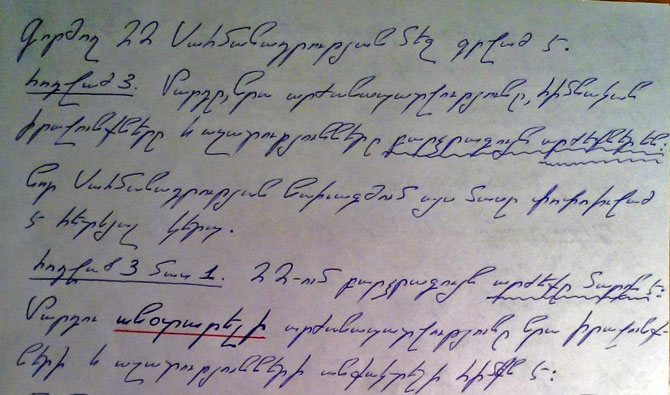 Գործող ՀՀ Սահմանադրության մեջ գրված է.
հոդված 3. Մարդը, նրա արժանապատվությունը, հիմնական
իրավունքները և ազատությունները բարձրագույն արժեքներ են:
Նոր Սահմանադրության նախագծում այս մասը փոփոխված
է հետևյալ կերպ.
հոդված 3 մաս 1. ՀՀ-ում բարձրագույն արժեքը մարդն է:
Մարդու անօտարելի արժանապատվությունը նրա իրավունք-
ների և ազատությունների անքակտելի հիմքն է: